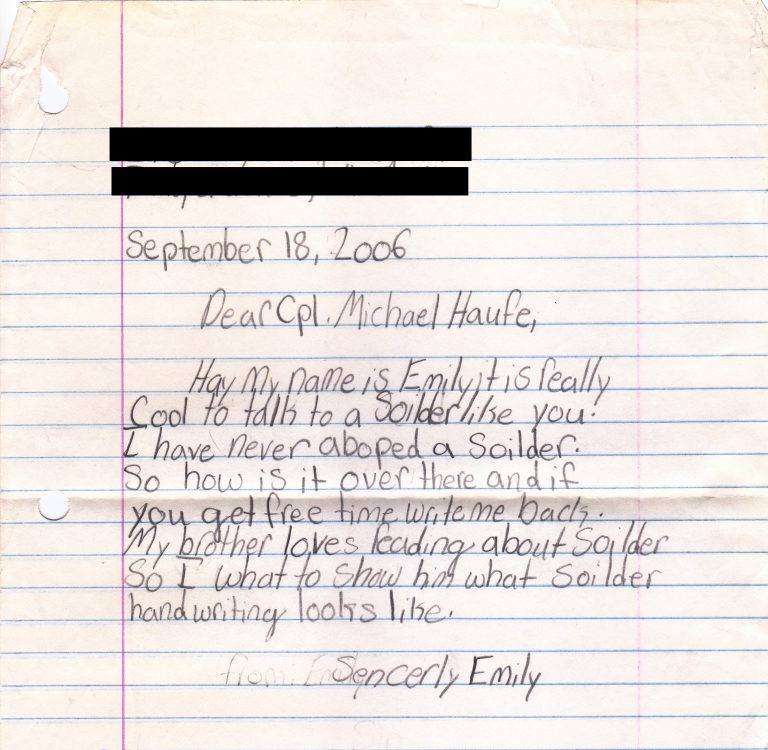 September 18, 2006
Dear Cpl. Michael Haufe,
Hay My name is Emily, it is really
Cool to talk to a Soilder like you.
I have never aboped a Soilder.
So how is it over there and if
you get free time write me back.
My brother loves reading about Soilder
So I what to show him what Soilder
handwriting looks like.
from: Sencerly Emily